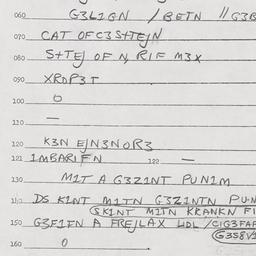 060 G3LIGN / BETN // G3B
070 CAT OF C3 S+TEJN
080 S+TEJ OF N, RIF M3X
090 XRDP3T
100 O
110 —
120 K3N EJN3NOR3
121 IMBARIFN 122 —
130 MIT A G3ZINT PUNIM
140 DS KINT MITN G3ZINTN PUN
SKINT MITN KRANKN FI
150 G3FIFN A FREJLAX LIDL / CIG3FAF
G3S8V1
160 O